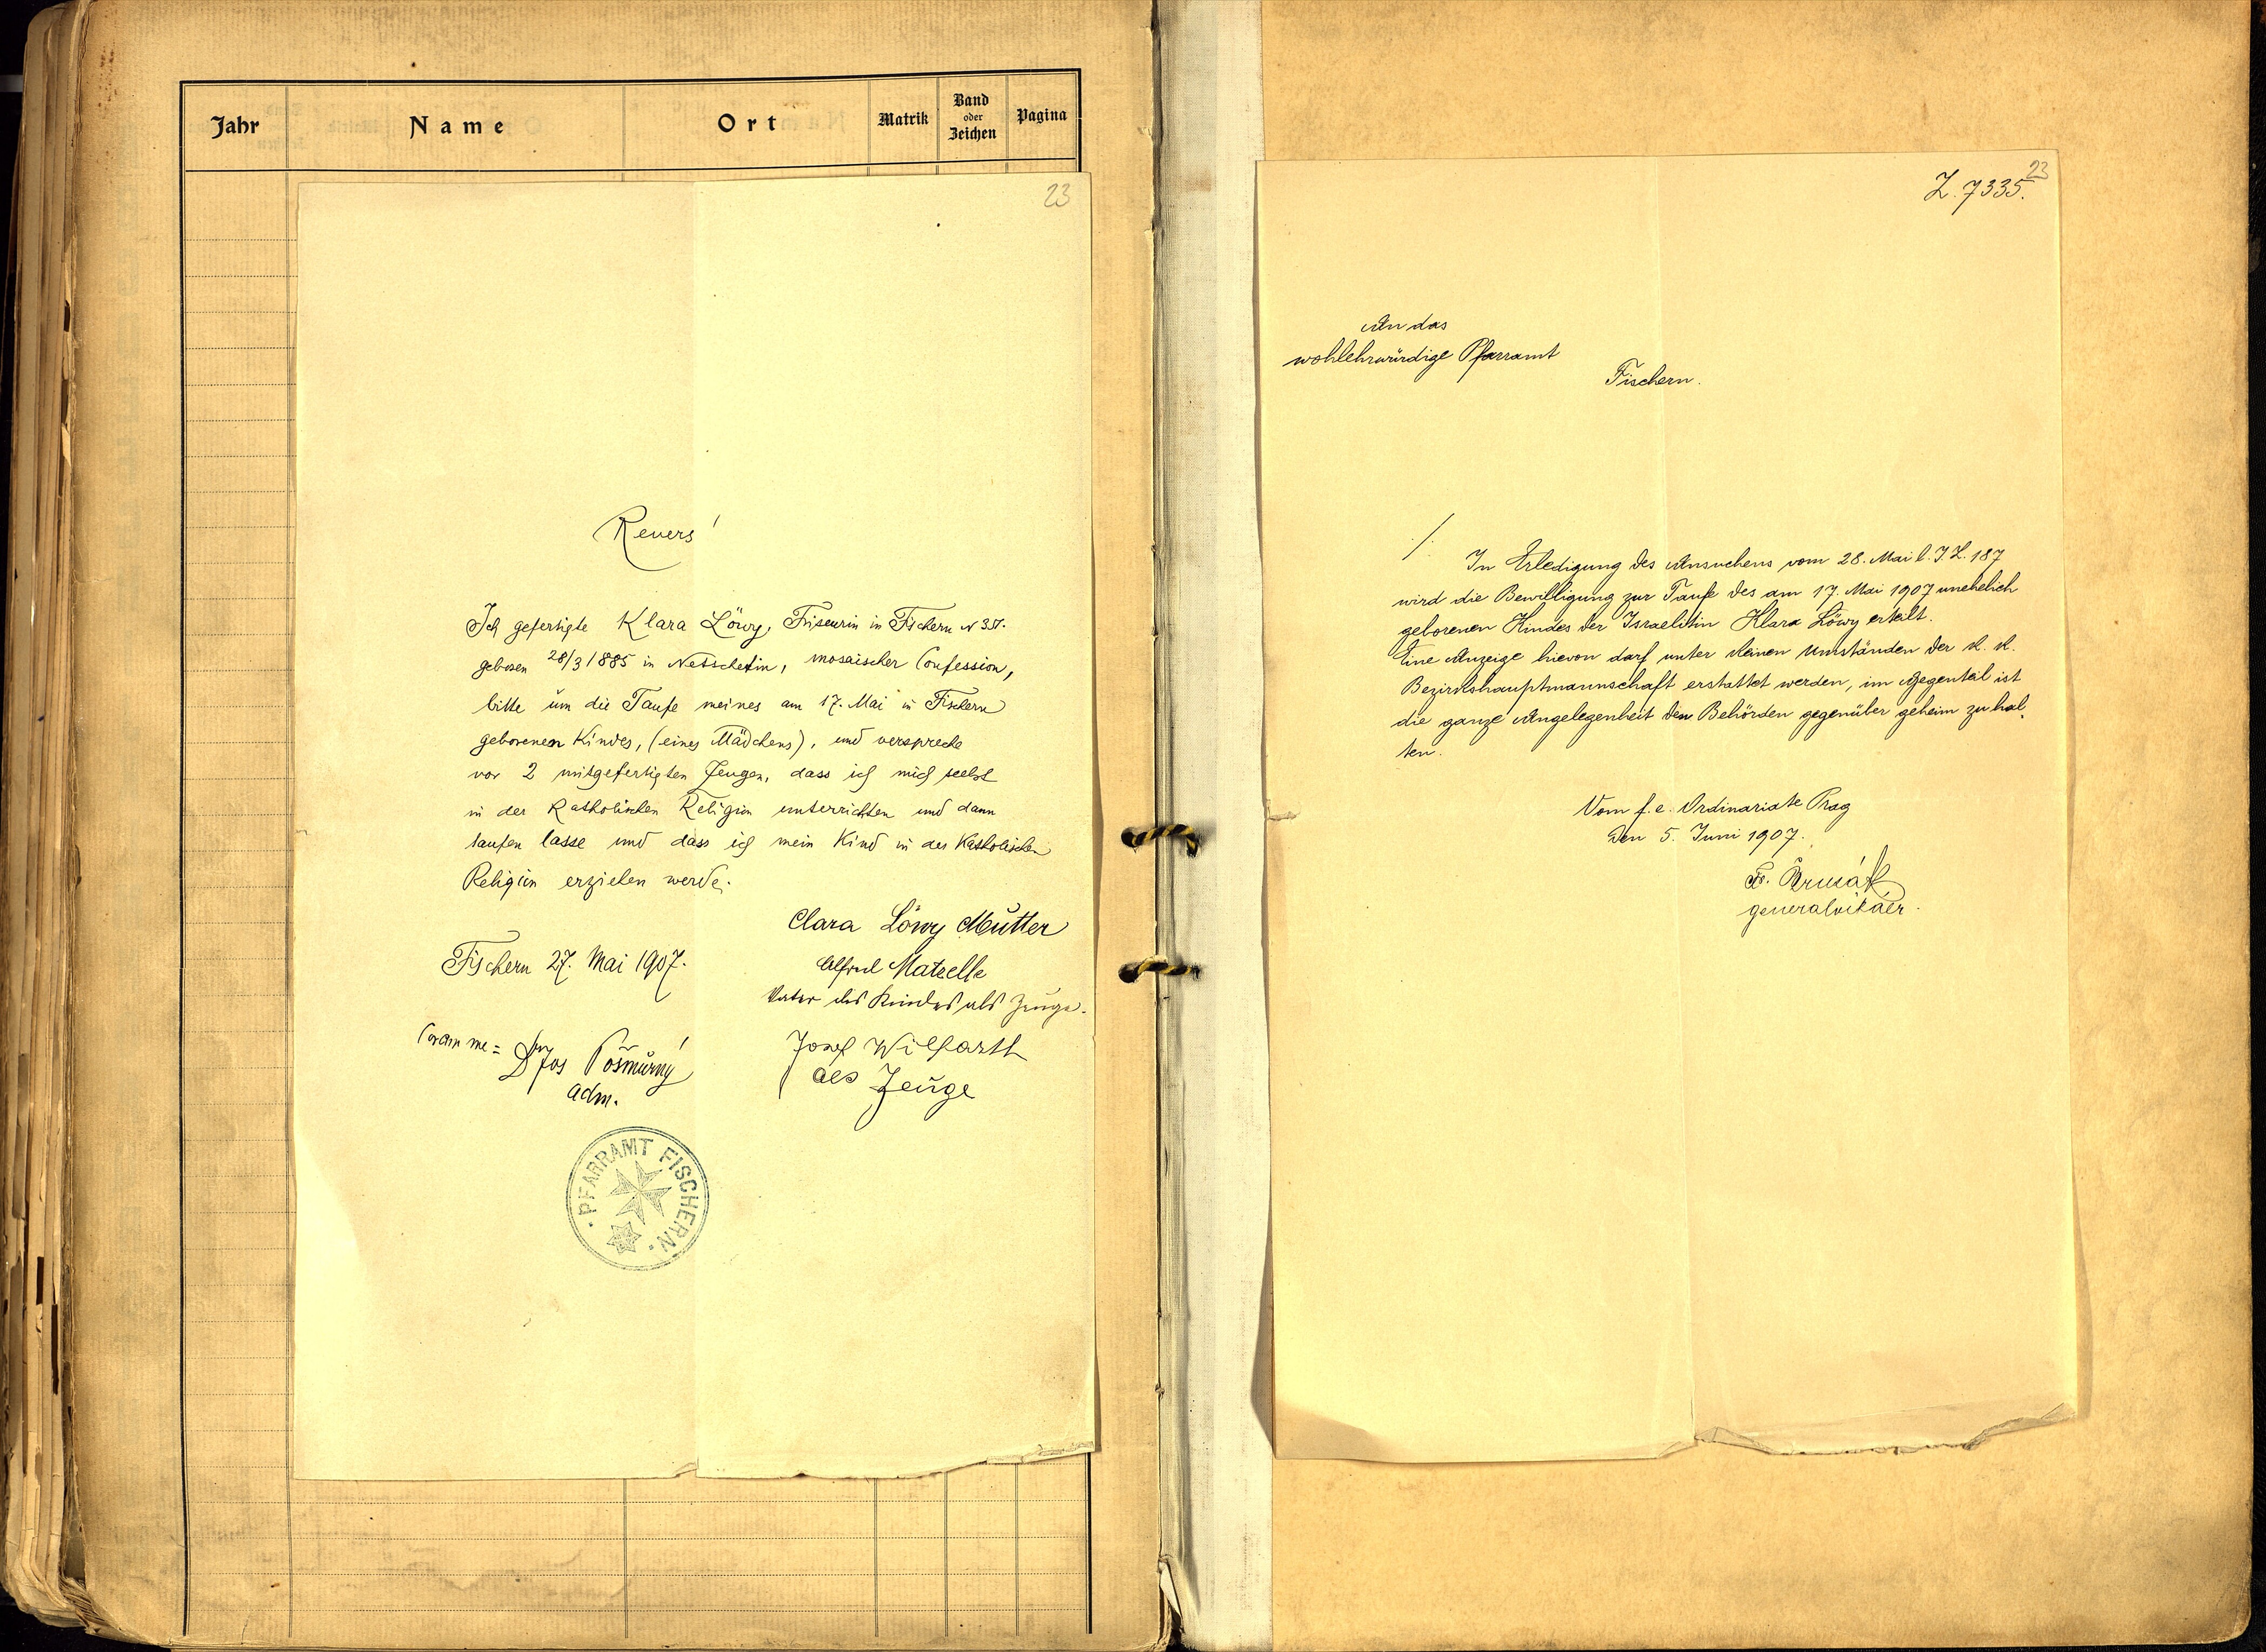 Jahr Name Ort Matrik Band oder Zeichen Pagina
23
Revers!
Ich gefertigte Klara Löwy, Friseurin in Fischern
geboren 28/3 1885 in Netschetin, mosaischer Confession,
bitte um die Taufe meines am 17. Mai in Fischern
geborenen Kindes, (eines Mädchens), und verspreche
vor 2 mitgefertigten Zeugen, dass ich mich selbst
in der Katholischen Religion unterrichten und dann
taufen lasse und dass ich mein Kind in der Katholischen
Religion erziehen werde.
Clara Löwy Mutter
Fischern 27. Mai 1907.
Alfred
Vater des Kindes als Zeuge.
Coram me =
Jos Pošmůrný
adm.
Josef Wilfarth
als Zeuge
PFARRAMT FISCHERN.
23
Z. 7335.
An das
wohlehrwürdige Pfarramt
Fischern.
./.
In Erledigung des Ansuchens vom 28. Mai l. J. Z. 187
wird die Bewilligung zur Taufe des am 17. Mai 1907 unehelich
geborenen Kindes der Israelitin Klara Löwy erteilt.
Eine Anzeige hievon darf unter keinen Umständen der k. k.
Bezirkshauptmannschaft erstattet werden, im Gegenteil ist
die ganze Angelegenheit den Behörden gegenüber geheim zu hal-
ten.
Vom f. e. Ordinariate Prag
den 5. Juni 1907.
generalvikäer.